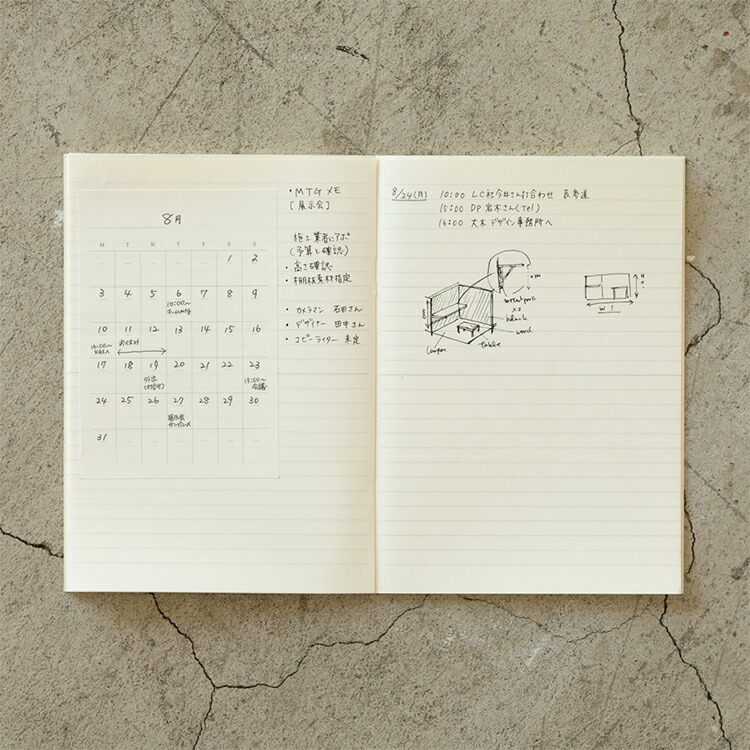 8月
M T W T F S S
1 2
3 4 5 6 7 8 9
10:00~
10 11 12 13 14 15 16
お休み
17 18 19 20 21 22 23
外出
13:00~
会議
24 25 26 27 28 29 30
展示会
31
・MTG メモ
[展示会]
施工業者にアポ
(予算と確認)
・高さ確認
・棚板素材指定
・カメラマン 石田さん
・デザイナー 田中さん
・コピーライター 未定
8/24(月) 10:00 LC社今井さん打合わせ 表参道
15:00 DP岩木さん(Tel)
16:00 大木デザイン事務所へ
metal pipe
x2
black
wood
table
H
W